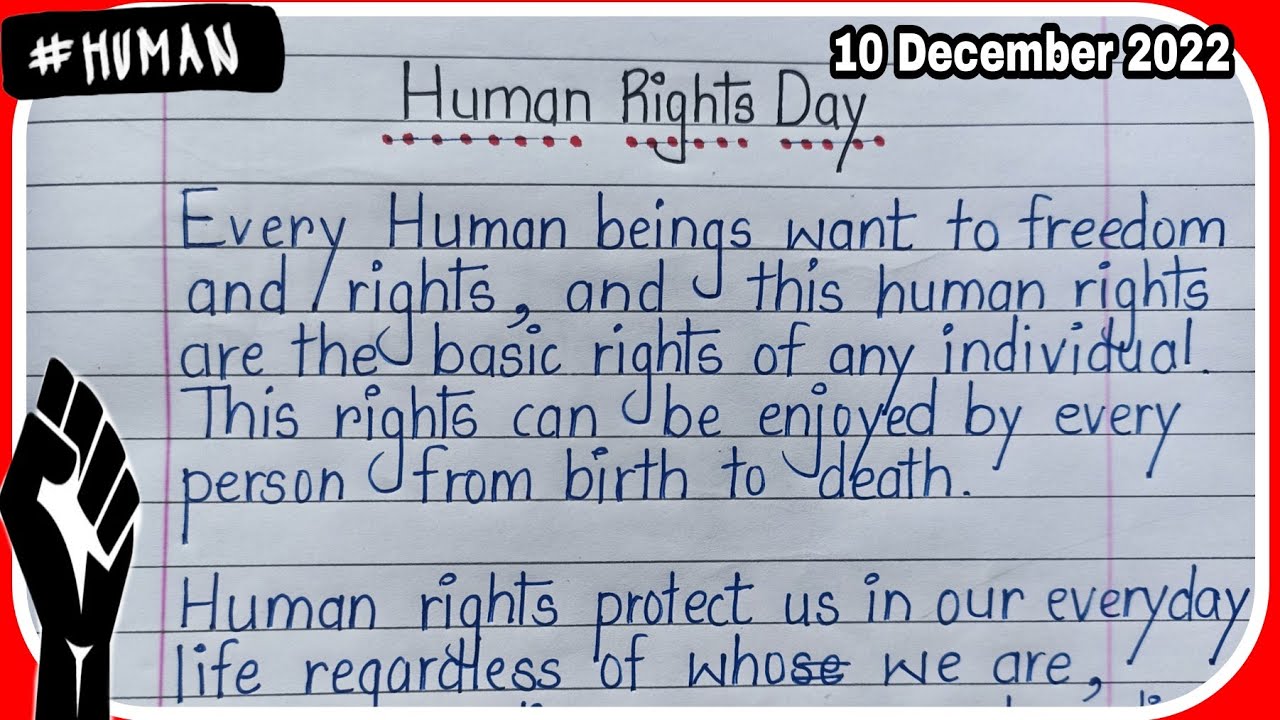 #HUMAN
10 December 2022
Human Rights Day
Every Human beings want to freedom
and rights, and this human rights
are the basic rights of any individual.
This rights can be enjoyed by every
person from birth to death.
Human rights protect us in our everyday
life regardless of whose we are,